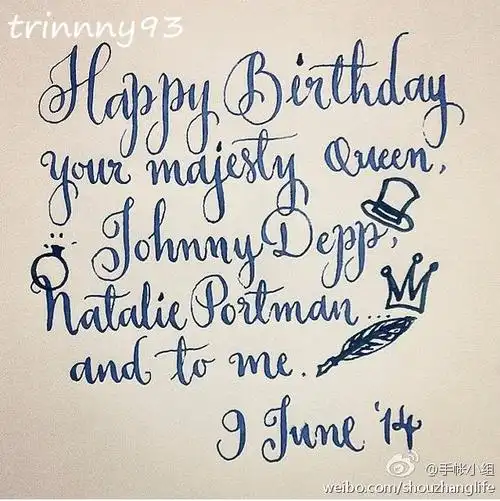 trinnny93
Happy Birthday
your majesty Queen,
Johnny Depp,
Natalie Portman...
and to me.
9 June '14
@手帐小组
weibo.com/shouzhanglife